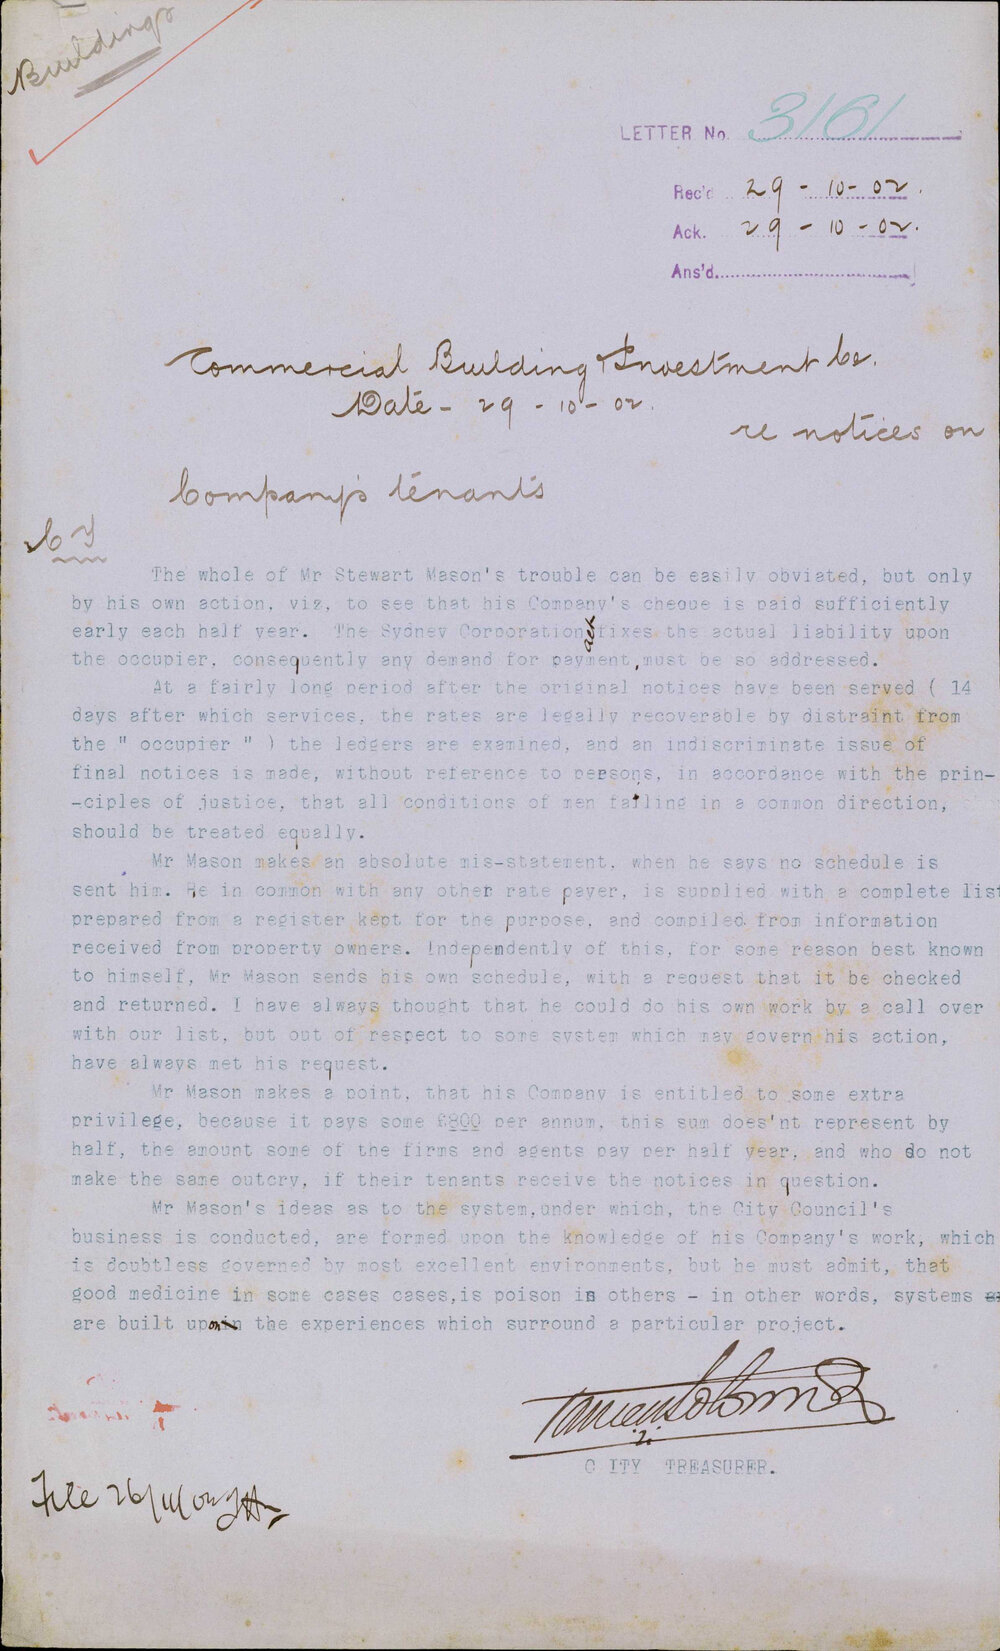 Buildings
LETTER No. 3161
Rec'd 29 - 10 - 02.
Ack. 29 - 10 - 02.
Ans'd.
Commercial Building & Investment Co.
Date - 29 - 10 - 02.
re notices on
Company's tenants
The whole of Mr Stewart Mason's trouble can be easily obviated, but only
by his own action, viz, to see that his Company's cheque is paid sufficiently
early each half year. The Sydney Corporation Act fixes the actual liability upon
the occupier, consequently any demand for payment, must be so addressed.
At a fairly long period after the original notices have been served ( 14
days after which services, the rates are legally recoverable by distraint from
the " occupier " ) the ledgers are examined, and an indiscriminate issue of
final notices is made, without reference to persons, in accordance with the prin-
-ciples of justice, that all conditions of men failing in a common direction,
should be treated equally.
Mr Mason makes an absolute mis-statement, when he says no schedule is
sent him. He in common with any other rate payer, is supplied with a complete list
prepared from a register kept for the purpose, and compiled from information
received from property owners. Independently of this, for some reason best known
to himself, Mr Mason sends his own schedule, with a request that it be checked
and returned. I have always thought that he could do his own work by a call over
with our list, but out of respect to some system which may govern his action,
have always met his request.
Mr Mason makes a point, that his Company is entitled to some extra
privilege, because it pays some £800 per annum, this sum does'nt represent by
half, the amount some of the firms and agents pay per half year, and who do not
make the same outcry, if their tenants receive the notices in question.
Mr Mason's ideas as to the system,under which, the City Council's
business is conducted, are formed upon the knowledge of his Company's work, which
is doubtless governed by most excellent environments, but he must admit, that
good medicine in some cases cases,is poison in others - in other words, systems
are built upon the experiences which surround a particular project.
C ITY TREASURER.
File 26/11/02